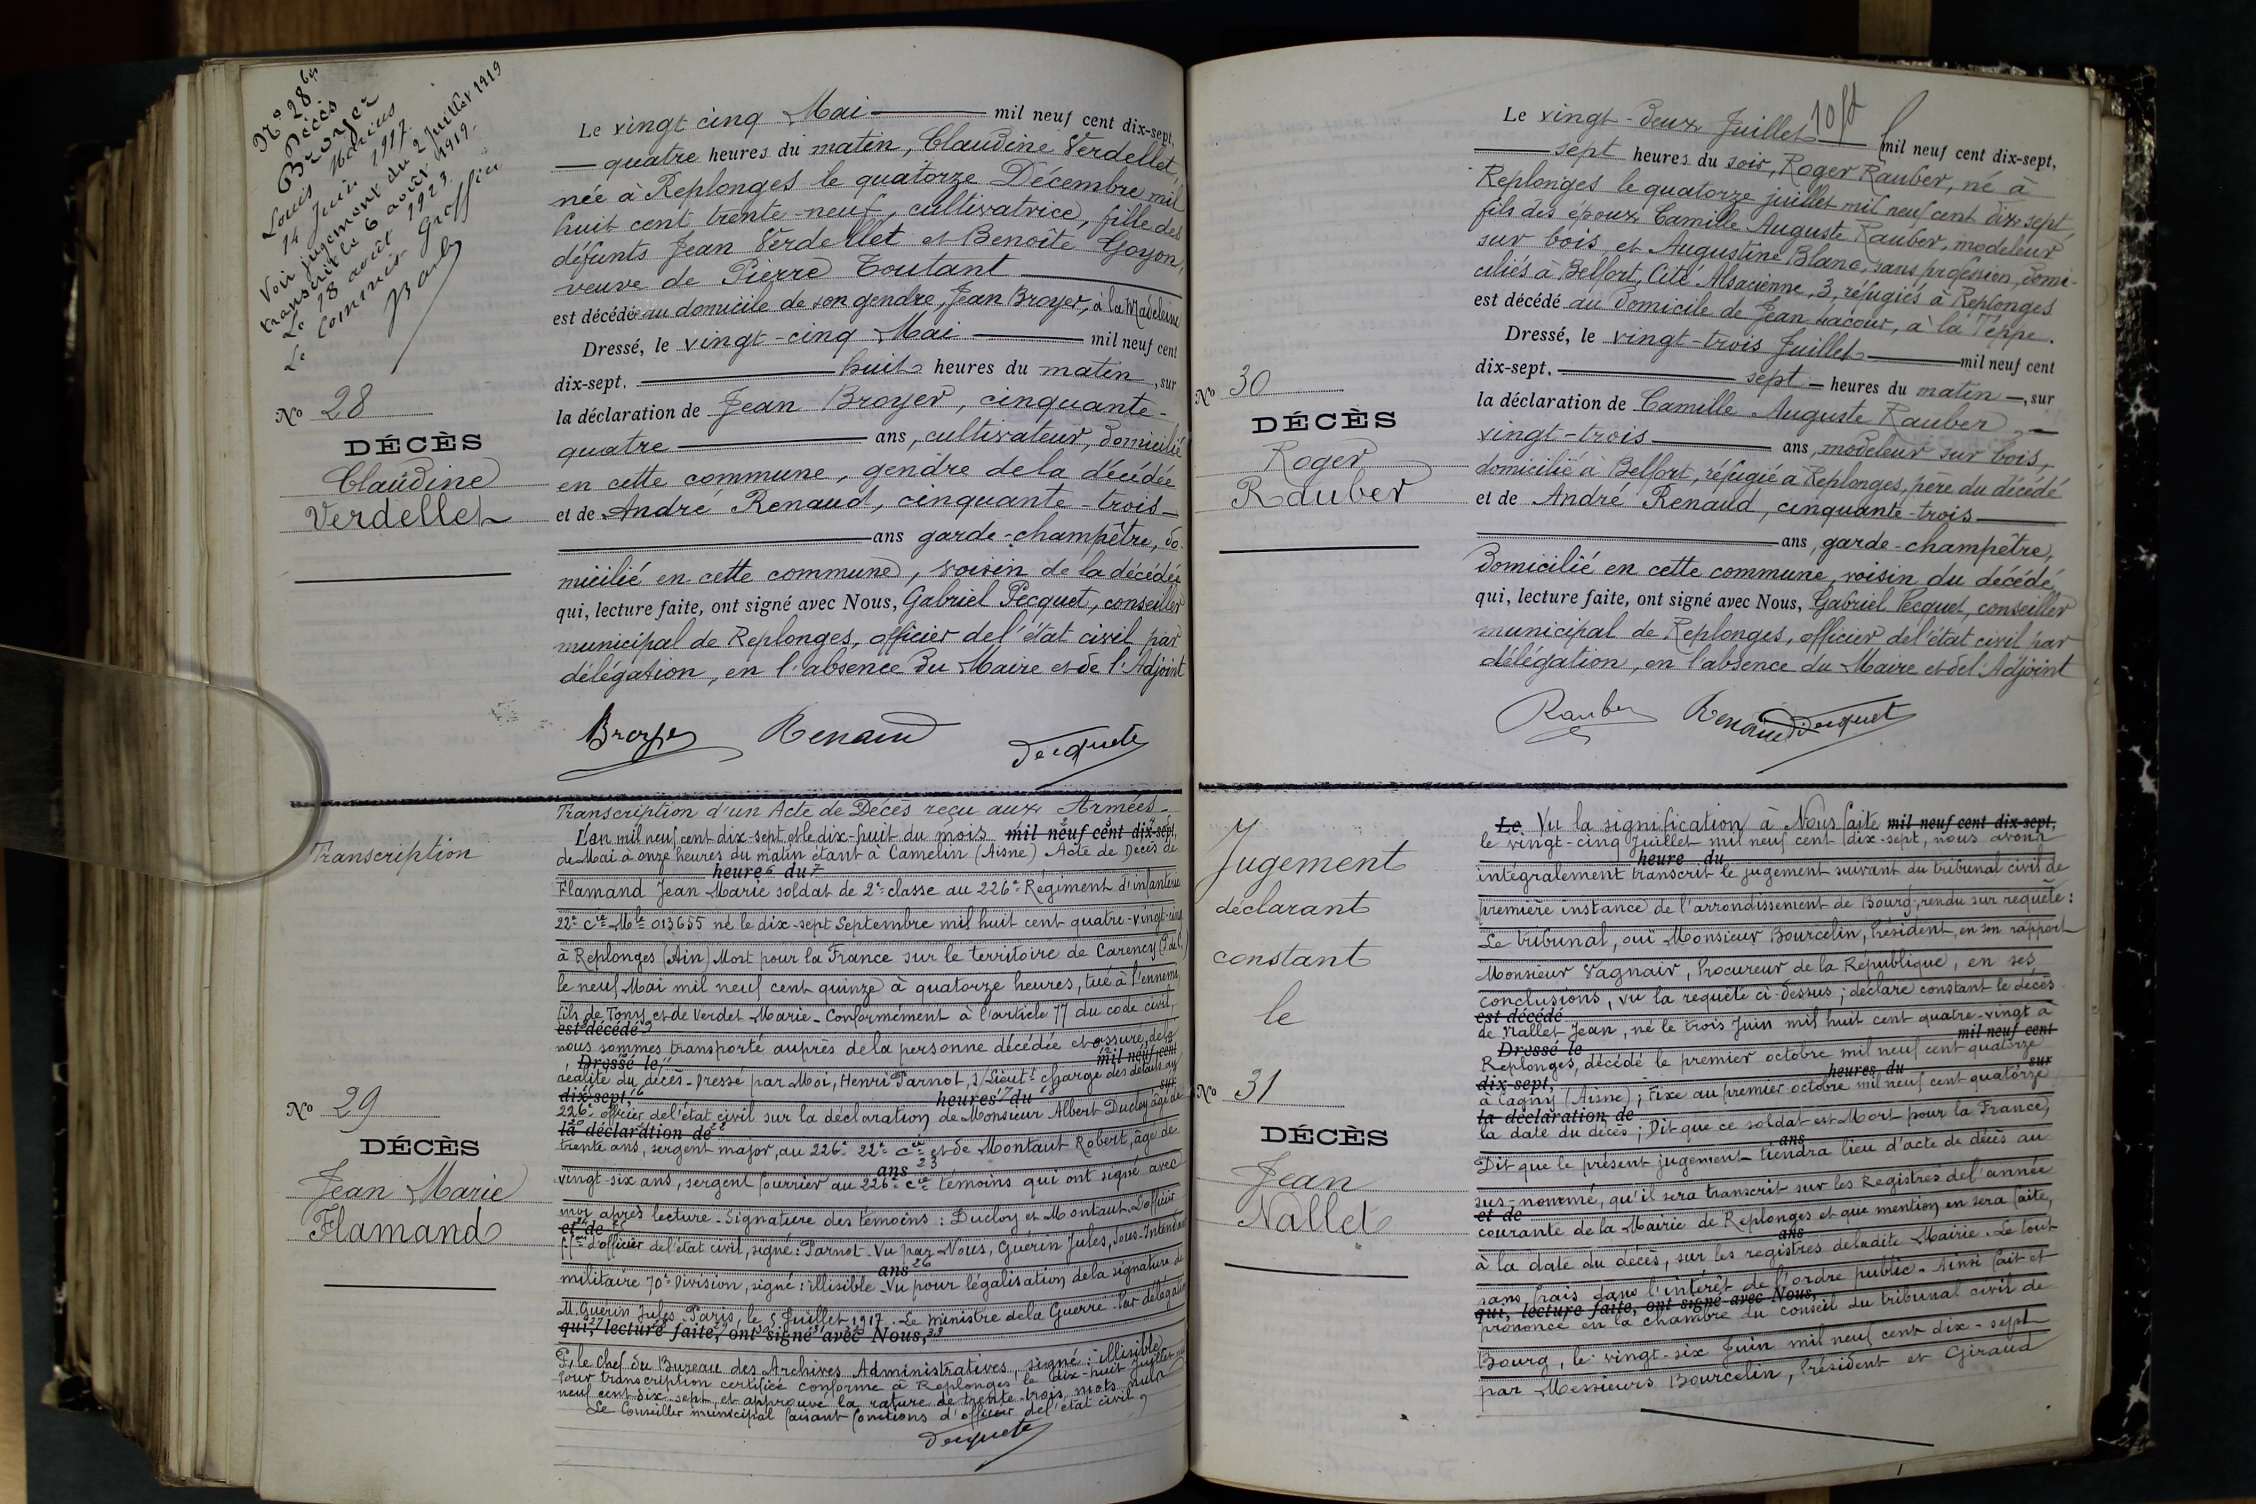 N° 28 bis
Décès
Broyer
Louis Marius
14 Juin 1917.
Voir jugement du 2 Juillet 1919
transcrit le 6 août 1919.
Le 18 août 1923
Le Commis Greffier
N° 28
DÉCÈS
Claudine
Verdellet
Le vingt cinq Mai mil neuf cent dix-sept,
quatre heures du matin, Claudine Verdellet,
née à Replonges le quatorze Décembre mil
huit cent trente-neuf, cultivatrice, fille des
défunts Jean Verdellet et Benoîte Goyon,
veuve de Pierre Toutant
est décédée au domicile de son gendre, Jean Broyer, à la Madeleine
Dressé, le vingt-cinq Mai mil neuf cent
dix-sept, huit heures du matin, sur
la déclaration de Jean Broyer, cinquante-
quatre ans, cultivateur, domicilié
en cette commune, gendre de la décédée
et de André Renaud, cinquante-trois
ans garde-champêtre, do-
micilié en cette commune, voisin de la décédée
qui, lecture faite, ont signé avec Nous, Gabriel Pecquet, conseiller
municipal de Replonges, officier de l'état civil par
délégation, en l'absence du Maire et de l'Adjoint
Broyer Renaud Pecquet
Transcription
N° 29
DÉCÈS
Jean Marie
Flamand
Transcription d'un Acte de Décès reçu aux Armées
L'an mil neuf cent dix-sept et le dix-huit du mois mil neuf cent dix-sept,
de Mai à onze heures du matin étant à Camelin (Aisne) Acte de Décès de
heures du
Flamand Jean Marie soldat de 2e classe au 226e Régiment d'infanterie
22e Cie Mle 013655 né le dix-sept Septembre mil huit cent quatre-vingt-cinq
à Replonges (Ain) Mort pour la France sur le territoire de Carency (P. de C.)
le neuf Mai mil neuf cent quinze à quatorze heures, tué à l'ennemi,
fils de Tony et de Verdet Marie - Conformément à l'article 77 du code civil,
est décédé
nous sommes transporté auprès de la personne décédée et assuré de la
Dressé le, mil neuf cent
réalité du décès - Dressé par Moi, Henri Parnot, S/Lieutt chargé des détails au
dix-sept, heures du sur
226e officier de l'état civil sur la déclaration de Monsieur Albert Ducloy âgé de
la déclaration de
trente ans, sergent major, au 226e 22e Cie et de Montaut Robert, âgé de
ans
vingt-six ans, sergent fourrier au 226e Cie témoins qui ont signé avec
moi après lecture - Signature des témoins : Ducloy et Montaut. L'officier
et de
ff. d'officier de l'état civil, signé : Parnot - Vu par Nous, Guérin Jules, Sous-Intendant
ans
militaire 70e Division, signé : illisible - Vu pour légalisation de la signature de
M. Guérin Jules - Paris, le 5 Juillet 1917 - Le Ministre de la Guerre - Par délégation
qui, lecture faite, ont signé avec Nous,
P. le Chef du Bureau des Archives Administratives, signé : illisible
Pour transcription certifiée conforme à Replonges le dix-huit Juillet mil
neuf cent dix-sept, et approuvé la rature de trente-trois mots nuls
Le Conseiller municipal faisant fonctions d'officier de l'état civil
Pecquet
N° 30
DÉCÈS
Roger
Rauber
Le vingt-deux Juillet mil neuf cent dix-sept,
sept heures du soir, Roger Rauber, né à
Replonges le quatorze juillet mil neuf cent dix sept,
fils des époux Camille Auguste Rauber, modeleur
sur bois et Augustine Blanc, sans profession, domi-
ciliés à Belfort, Cité Alsacienne, 3, réfugiés à Replonges
est décédé au domicile de Jean Lacour, à la Teppe.
Dressé, le vingt-trois Juillet mil neuf cent
dix-sept, sept heures du matin, sur
la déclaration de Camille Auguste Rauber,
vingt-trois ans, modeleur sur bois,
domicilié à Belfort, réfugié à Replonges, père du décédé
et de André Renaud, cinquante-trois
ans, garde-champêtre,
domicilié en cette commune, voisin du décédé
qui, lecture faite, ont signé avec Nous, Gabriel Pecquet, conseiller
municipal de Replonges, officier de l'état civil par
délégation, en l'absence du Maire et de l'Adjoint
Rauber Renaud Pecquet
Jugement
déclarant
constant
le
N° 31
DÉCÈS
Jean
Nallet
Le Vu la signification à Nous faite mil neuf cent dix-sept,
le vingt-cinq Juillet mil neuf cent dix-sept, nous avons
heure du
intégralement transcrit le jugement suivant du tribunal civil de
première instance de l'arrondissement de Bourg, rendu sur requête :
Le tribunal, ouï Monsieur Bourcelin, Président, en son rapport
Monsieur Vagnair, Procureur de la République, en ses
conclusions, vu la requête ci-dessus ; déclare constant le décès
est décédé
de Nallet Jean, né le trois Juin mil huit cent quatre-vingt à
Dressé le mil neuf cent
Replonges, décédé le premier octobre mil neuf cent quatorze
dix-sept, heures du sur
à Cagny (Aisne) ; Fixe au premier octobre mil neuf cent quatorze
la déclaration de
la date du décès ; Dit que ce soldat est Mort pour la France,
ans
Dit que le présent jugement tiendra lieu d'acte de décès au
sus-nommé, qu'il sera transcrit sur les Registres de l'année
et de
courante de la Mairie de Replonges et que mention en sera faite,
ans
à la date du décès, sur les registres de ladite Mairie. Le tout
sans frais dans l'intérêt de l'ordre public - Ainsi fait et
qui, lecture faite, ont signé avec Nous,
prononcé en la chambre du conseil du tribunal civil de
Bourg, le vingt-six Juin mil neuf cent dix-sept
par Messieurs Bourcelin, Président et Giraud